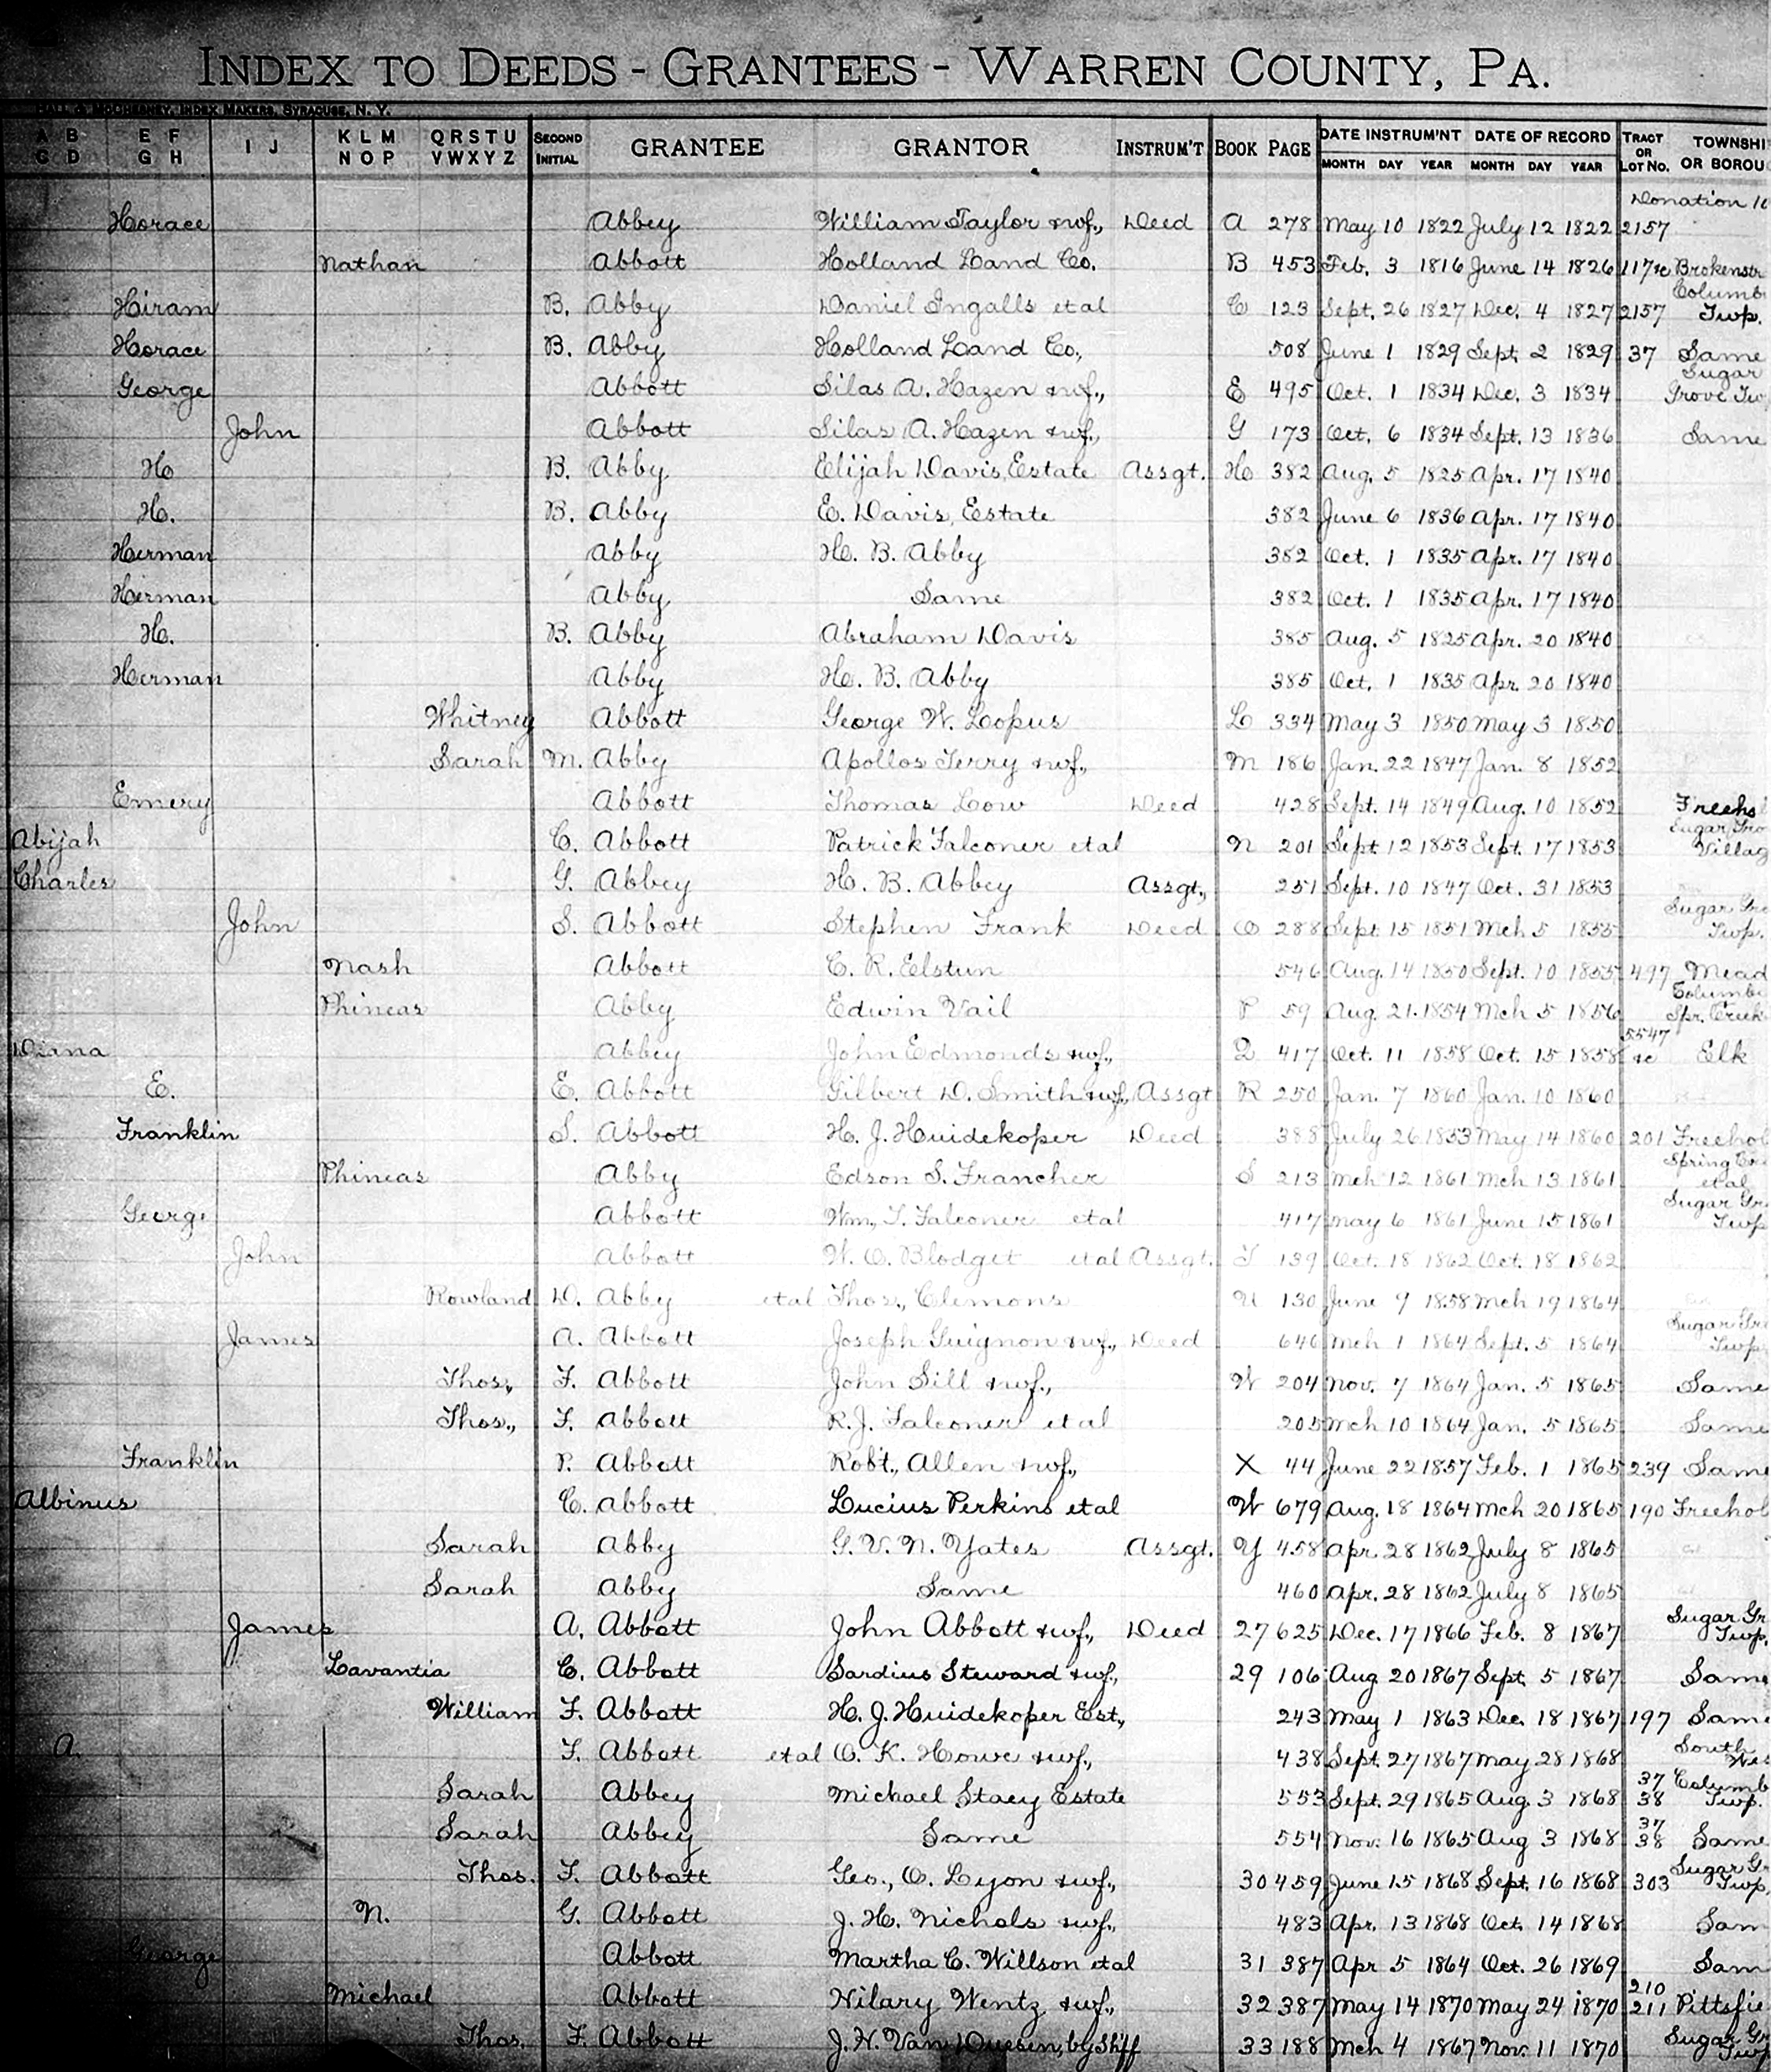 INDEX TO DEEDS - GRANTEES - WARREN COUNTY, PA.
HALL & MCCHESNEY, INDEX MAKERS, SYRACUSE, N. Y.
A B C D E F G H I J K L M N O P Q R S T U V W X Y Z SECOND INITIAL GRANTEE GRANTOR INSTRUM'T BOOK PAGE DATE INSTRUM'NT MONTH DAY YEAR DATE OF RECORD MONTH DAY YEAR TRACT OR LOT NO. TOWNSHI OR BOROU
Donation
Horace Abbey William Taylor & wf., Deed A 278 May 10 1822 July 12 1822 2157
Nathan Abbott Holland Land Co. B 453 Feb. 3 1816 June 14 1826 117 &c Brokenstr
Hiram B. Abby Daniel Ingalls et al C 123 Sept. 26 1827 Dec. 4 1827 2157 Columb Twp.
Horace B. Abby Holland Land Co., 508 June 1 1829 Sept. 2 1829 37 Same
George Abbott Silas A. Hazen & wf., E 495 Oct. 1 1834 Dec. 3 1834 Sugar Grove Tw
John Abbott Silas A. Hazen & wf., G 173 Oct. 6 1834 Sept. 13 1836 Same
H B. Abby Elijah Davis, Estate Assgt. H 382 Aug. 5 1825 Apr. 17 1840
H. B. Abby E. Davis, Estate 382 June 6 1836 Apr. 17 1840
Herman Abby H. B. Abby 382 Oct. 1 1835 Apr. 17 1840
Herman Abby Same 382 Oct. 1 1835 Apr. 17 1840
H. B. Abby Abraham Davis 385 Aug. 5 1825 Apr. 20 1840
Herman Abby H. B. Abby 385 Oct. 1 1835 Apr. 20 1840
Whitney Abbott George W. Lopus L 334 May 3 1850 May 3 1850
Sarah M. Abby Apollos Terry & wf., M 186 Jan. 22 1847 Jan. 8 1852
Emery Abbott Thomas Low Deed 428 Sept. 14 1849 Aug. 10 1852 Freehol
Abijah C. Abbott Patrick Falconer et al N 201 Sept 12 1853 Sept. 17 1853 Sugar Gro Villag
Charles G. Abbey H. B. Abbey Assgt., 251 Sept. 10 1847 Oct. 31 1853
John S. Abbott Stephen Frank Deed O 288 Sept 15 1851 Mch 5 1855 Sugar Gro Twp.
Nash Abbott C. R. Elstun 546 Aug. 14 1850 Sept. 10 1855 497 Mead
Phineas Abby Edwin Vail P 59 Aug. 21. 1854 Mch 5 1856 Columb + Spr. Creek
Diana Abbey John Edmonds & wf., Q 417 Oct. 11 1858 Oct. 15 1858 5547 &c Elk
E. E. Abbott Gilbert D. Smith & wf., Assgt R 250 Jan. 7 1860 Jan. 10 1860
Franklin S. Abbott H. J. Huidekoper Deed 388 July 26 1853 May 14 1860 201 Freehol
Phineas Abby Edson S. Francher S 213 Mch 12 1861 Mch 13 1861 Spring Cre et al
George Abbott Wm., T. Falconer et al 417 May 6 1861 June 15 1861 Sugar Gr. Twp
John Abbott W. O. Blodget et al Assgt. T 139 Oct. 18 1862 Oct. 18 1862
Rowland D. Abby et al Thos., Clemons U 130 June 9 1858 Mch 19 1864
James A. Abbott Joseph Guignon & wf., Deed 646 Mch 1 1864 Sept. 5 1864 Sugar Gr Twp
Thos., F. Abbott John Sill & wf., W 204 Nov. 7 1864 Jan. 5 1865 Same
Thos., F. Abbott R. J. Falconer et al 205 Mch 10 1864 Jan. 5 1865 Same
Franklin P. Abbott Robt., Allen & wf., X 44 June 22 1857 Feb. 1 1865 239 Same
Albinus C. Abbott Lucius Perkins et al W 679 Aug. 18 1864 Mch 20 1865 190 Freehol
Sarah Abby G. V. N. Yates Assgt. Y 458 Apr. 28 1862 July 8 1865
Sarah Abby Same 460 Apr. 28 1862 July 8 1865
James A. Abbott John Abbott & wf., Deed 27 625 Dec. 17 1866 Feb. 8 1867 Sugar Gr Twp.
Lavantia C. Abbott Sardius Steward & wf., 29 106 Aug 20 1867 Sept. 5 1867 Same
William F. Abbott H. J. Huidekoper Est., 243 May 1 1863 Dec. 18 1867 197 Same
A. T. Abbott et al O. K. Howe & wf., 438 Sept. 27 1867 May 28 1868 South Wes
Sarah Abbey Michael Stacy Estate 553 Sept. 29 1865 Aug. 3 1868 37 38 Columb Twp.
Sarah Abbey Same 554 Nov. 16 1865 Aug 3 1868 37 38 Same
Thos. F. Abbott Geo., O. Lyon & wf., 30 459 June 15 1868 Sept. 16 1868 303 Sugar Gr Twp.
N. G. Abbott J. H. Nichols & wf., 483 Apr. 13 1868 Oct. 14 1868 Sam
George Abbott Martha C. Willson et al 31 387 Apr 5 1864 Oct. 26 1869 Sam
Michael Abbott Hilary Wentz & wf., 32 387 May 14 1870 May 24 1870 210 211 Pittsfie
Thos. F. Abbott J. H. Van Duesen, by Shff 33 188 Mch 4 1867 Nov. 11 1870 Sugar Gr Twp